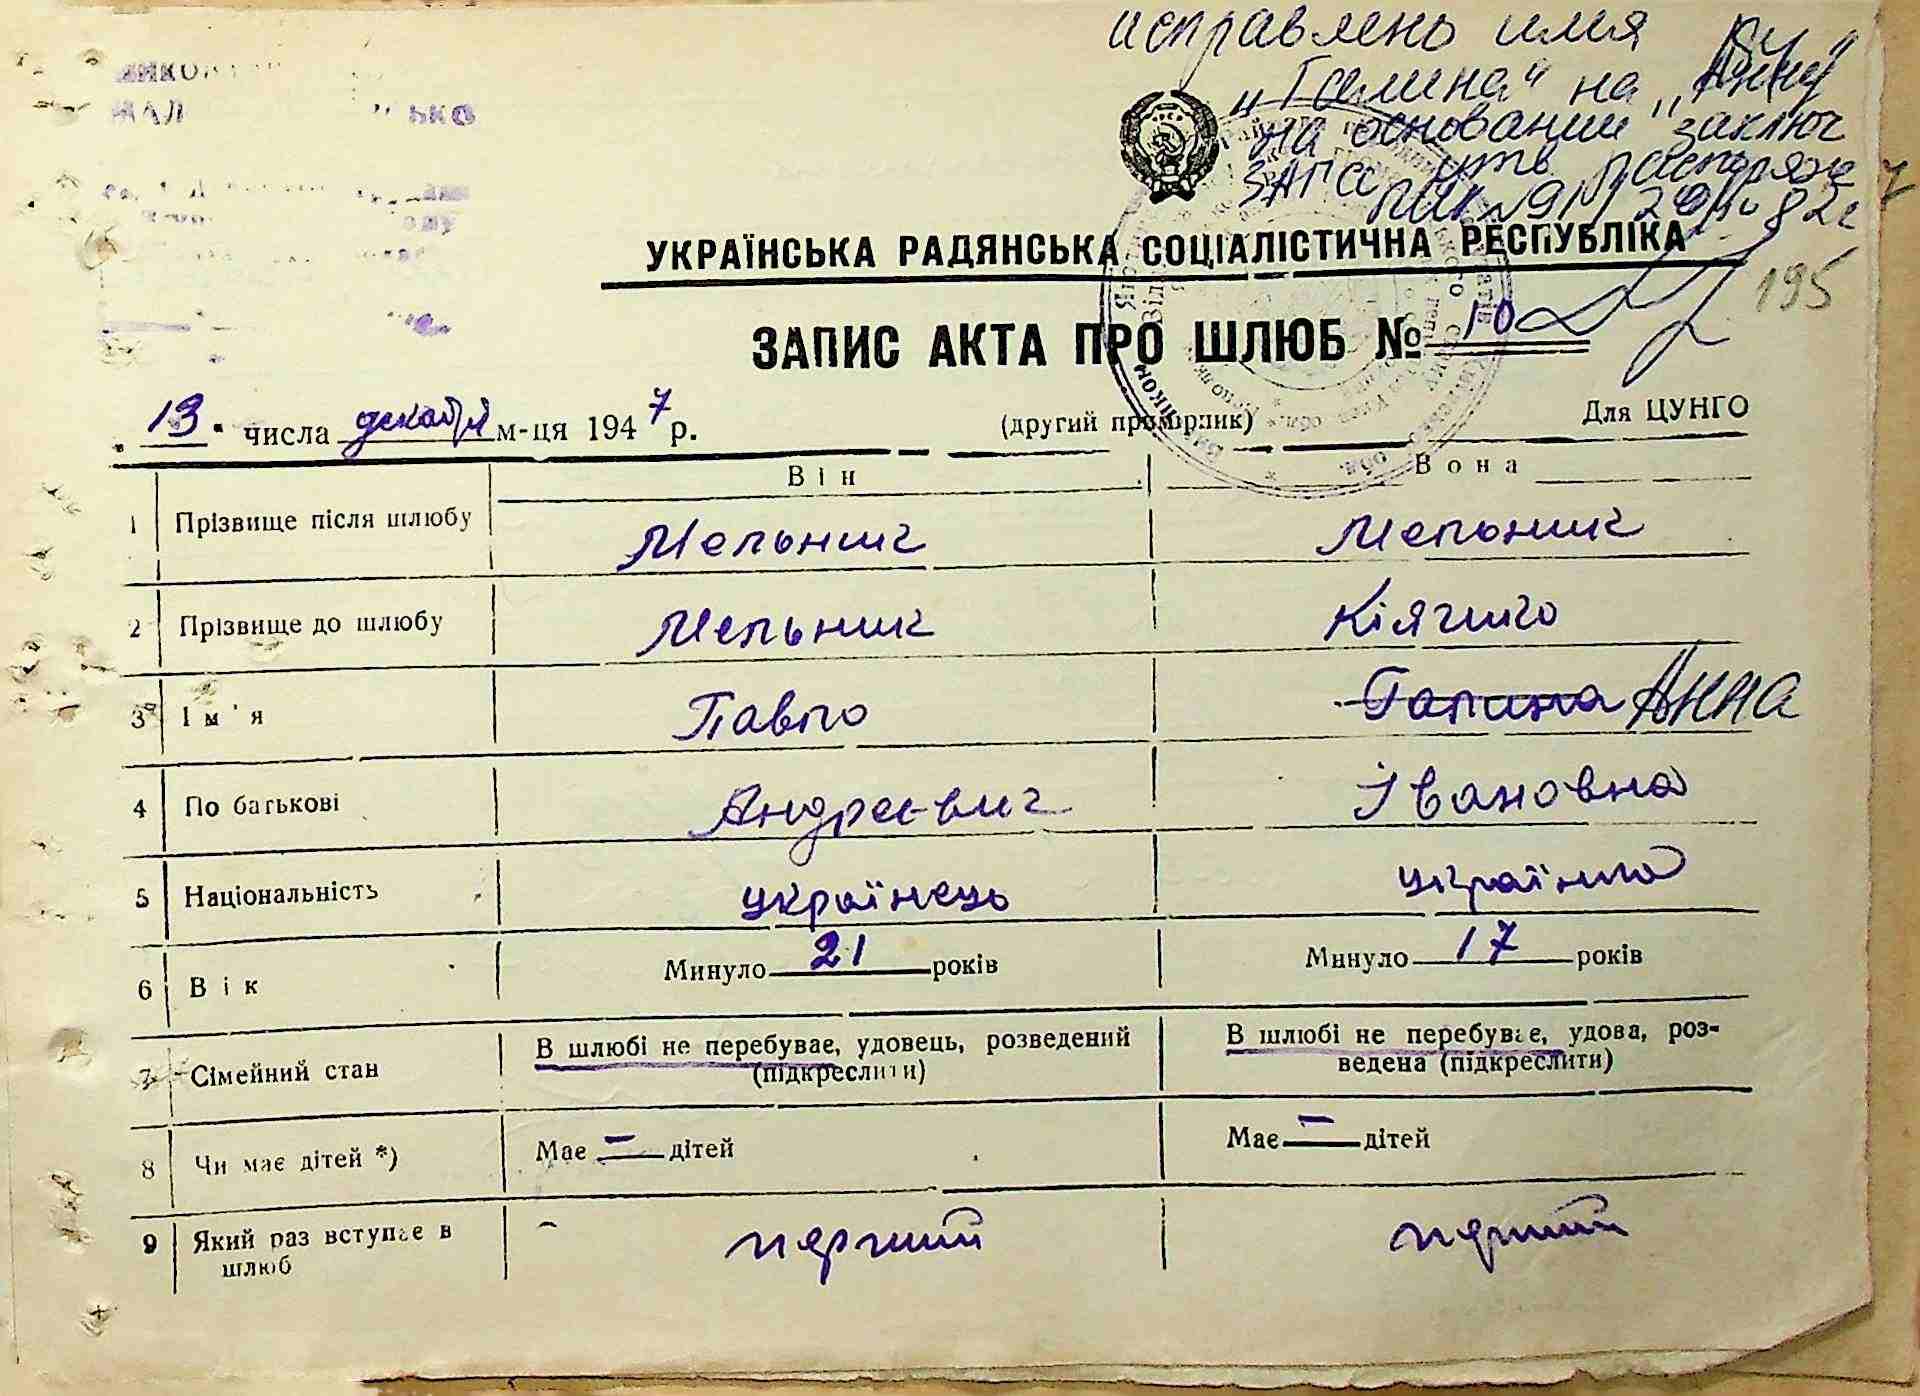 исправлено имя
„Галина“ на „Анну“
на основании заключ
ЗАГСа утв распоряж
195
УКРАЇНСЬКА РАДЯНСЬКА СОЦІАЛІСТИЧНА РЕСПУБЛІКА
ЗАПИС АКТА ПРО ШЛЮБ № 10
13 числа декабря м-ця 1947 р. (другий примірник) Для ЦУНГО
Він Вона
1 Прізвище після шлюбу Мельник Мельник
2 Прізвище до шлюбу Мельник
3 Ім'я Павло Галина Анна
4 По батькові Андреевич Івановна
5 Національність українець українка
6 Вік Минуло 21 років Минуло 17 років
7 Сімейний стан В шлюбі не перебуває, удовець, розведений (підкреслити) В шлюбі не перебуває, удова, роз-
ведена (підкреслити)
8 Чи має дітей *) Має — дітей Має — дітей
9 Який раз вступає в
шлюб перший перший